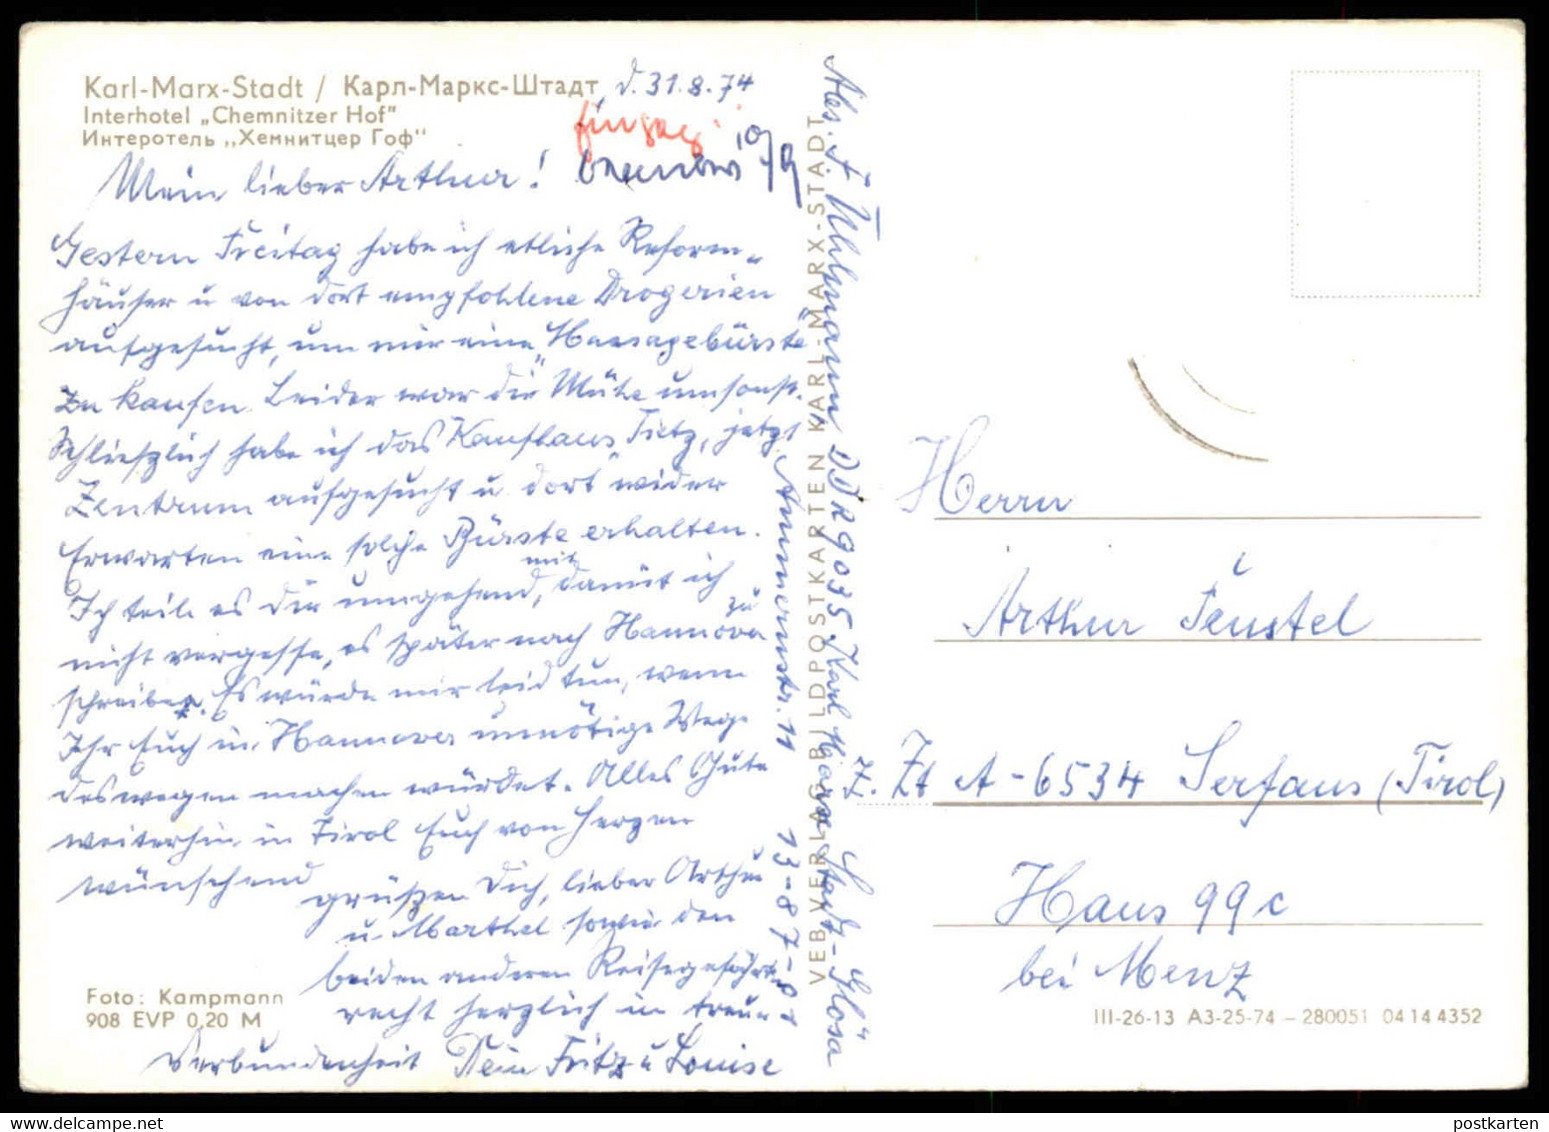 Karl-Marx-Stadt / Карл-Маркс-Штадт, d. 31.8.74
Interhotel „Chemnitzer Hof"
Интеротель „Хемнитцер Гоф"
10/9
Mein lieber Arthur!
Gestern Freitag habe ich etliche Reform-
häuser u von dort empfohlene Drogerien
aufgesucht, um mir eine „Massagebürste"
zu kaufen. Leider war die Mühe umsonst.
Schließlich habe ich das Kaufhaus Tietz, jetzt
Zentrum aufgesucht u. dort wider
Erwarten eine solche Bürste erhalten.
Ich teile es Dir umgehend mit, damit ich
nicht vergesse, es später nach Hannover zu
schreiben. Es würde mir leid tun, wenn
Ihr Euch in Hannover unnötige Wege
deswegen machen würdet. Alles Gute
weiterhin in Tirol Euch von Herzen
wünschend
grüßen Dich, lieber Arthur
u. Marthel sowie den
beiden anderen Reisegefährten
recht herzlich in treuer
Verbundenheit Dein Fritz u Louise
Foto: Kampmann
908 EVP 0,20 M
Abs. F. Uhlmann DDR 9035 Karl Marx Stadt-Glösa
Annenstr. 11
13-87-01
VEB VERLAG BILDPOSTKARTEN KARL-MARX-STADT
Herrn
Arthur Feustel
z. Zt A-6534 Serfaus (Tirol)
Haus 99c
bei Menz
III-26-13 A3-25-74 – 280051 04 14 4352
postkarten